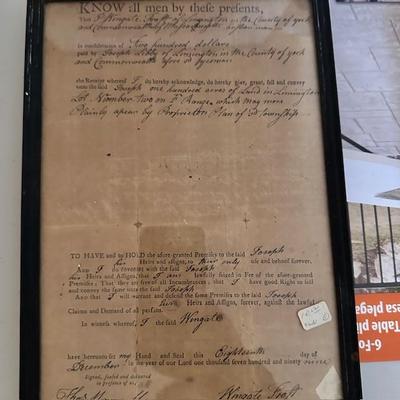 KNOW all men by these presents,
That I Wingate Frost of Limington in the County of york
and Commonwealth of Massachusetts
in consideration of Two hundred dollars
paid by Joseph Libby of Limington in the County of york
and Commonwealth afore sd yeoman
the Receipt whereof I do hereby acknowledge, do hereby give, grant, sell and convey
unto the said Joseph one hundred acres of Land in Limington
Lot Number two in F Range, which may more
Plainly apear by Proprietors Plan of sd township
TO HAVE and to HOLD the afore-granted Premises to the said Joseph
his Heirs and Assigns, to their only use and behoof forever.
AND I do covenant with the said Joseph
his Heirs and Assigns, That I am lawfully seized in Fee of the afore-granted
Premises; That they are free of all Incumbrances; that I have good Right to sell
and convey the same to the said Joseph
And that I will warrant and defend the same Premises to the said Joseph
his Heirs and Assigns, forever, against the lawful
Claims and Demand of all persons.
In witness whereof, I the said Wingate
have hereunto set my Hand and Seal this Eighteenth day of
December in the year of our Lord one thousand seven hundred and ninety seven
Signed, sealed and delivered
in presence of us,
Wingate Frost
6-Fo
Table pl
esa plega